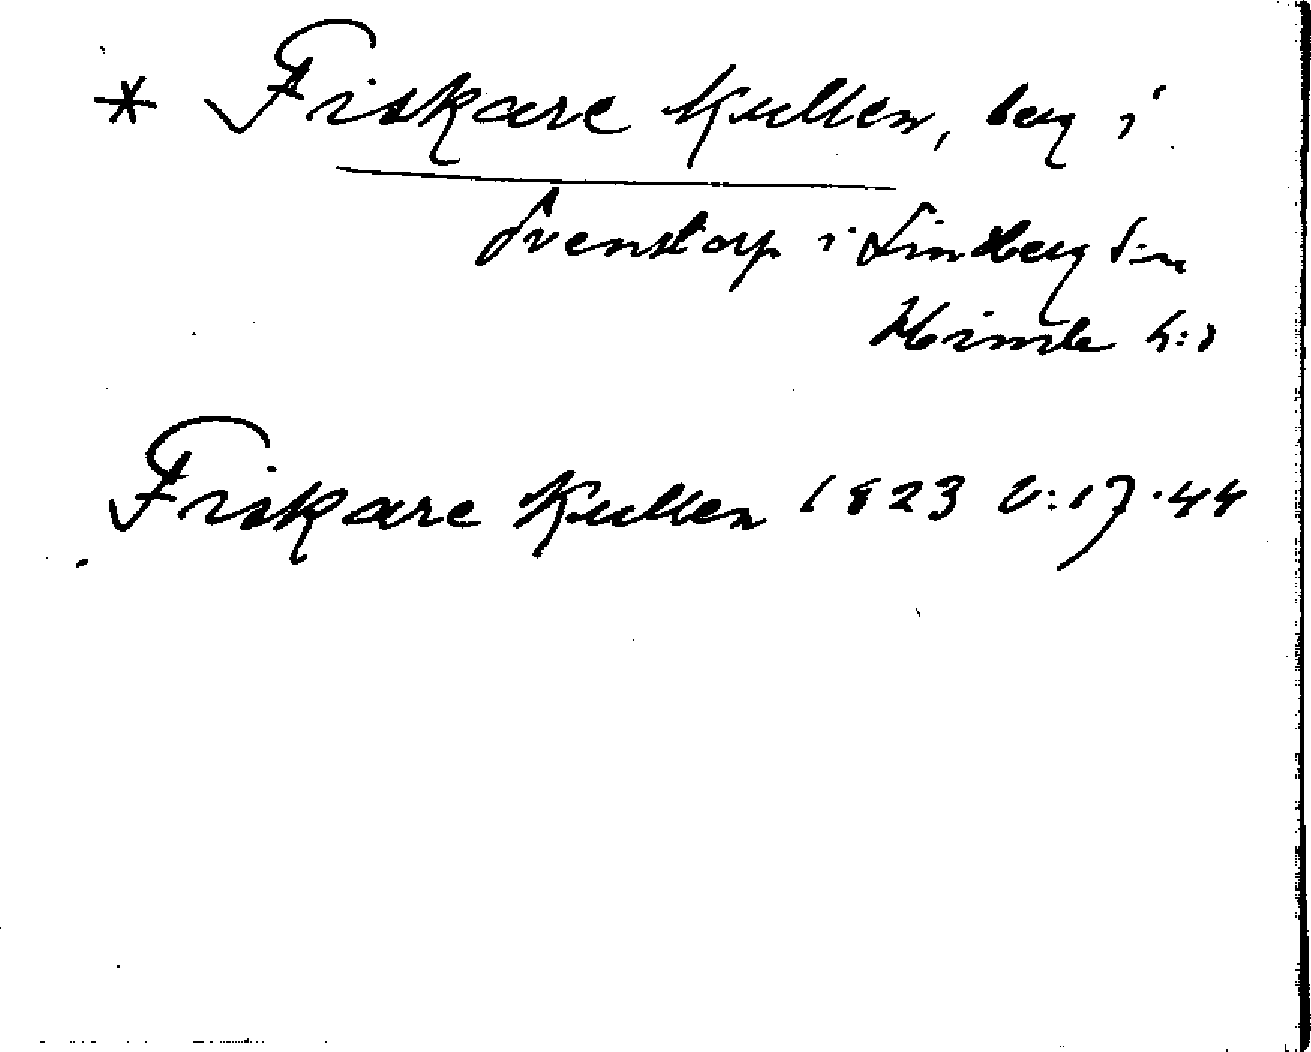 * Fiskare Kullen, berg i
Svenstorp i Lindberg sn
Himle h:d
Fiskare Kullen 1823 V:17.44